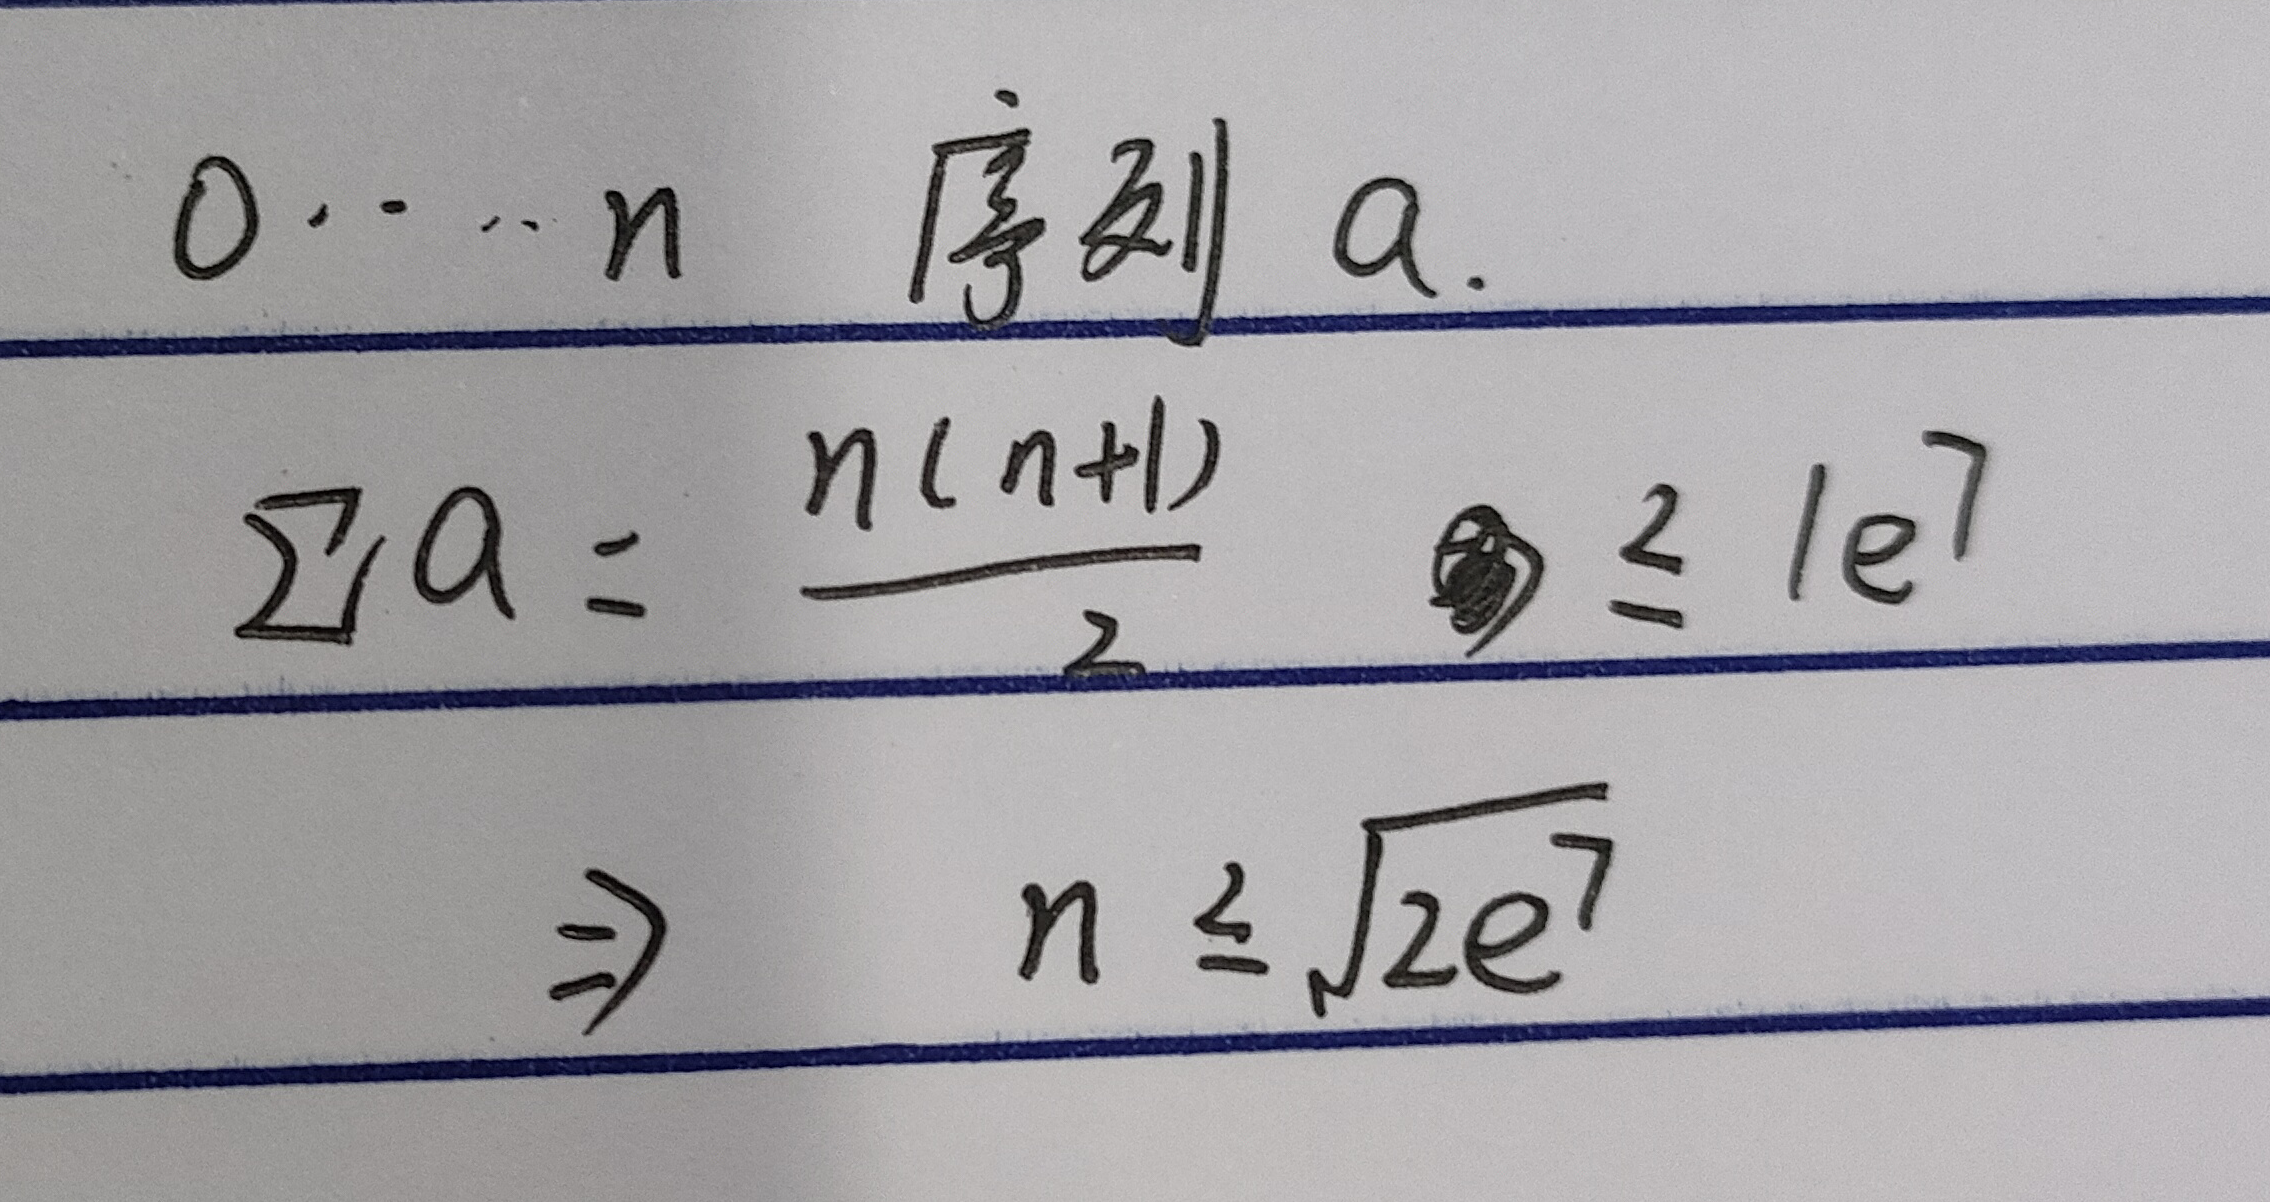 0 ····· n 序列 a.
∑a = n(n+1)/2 ≤ 1e⁷
⇒ n ≤ √2e⁷